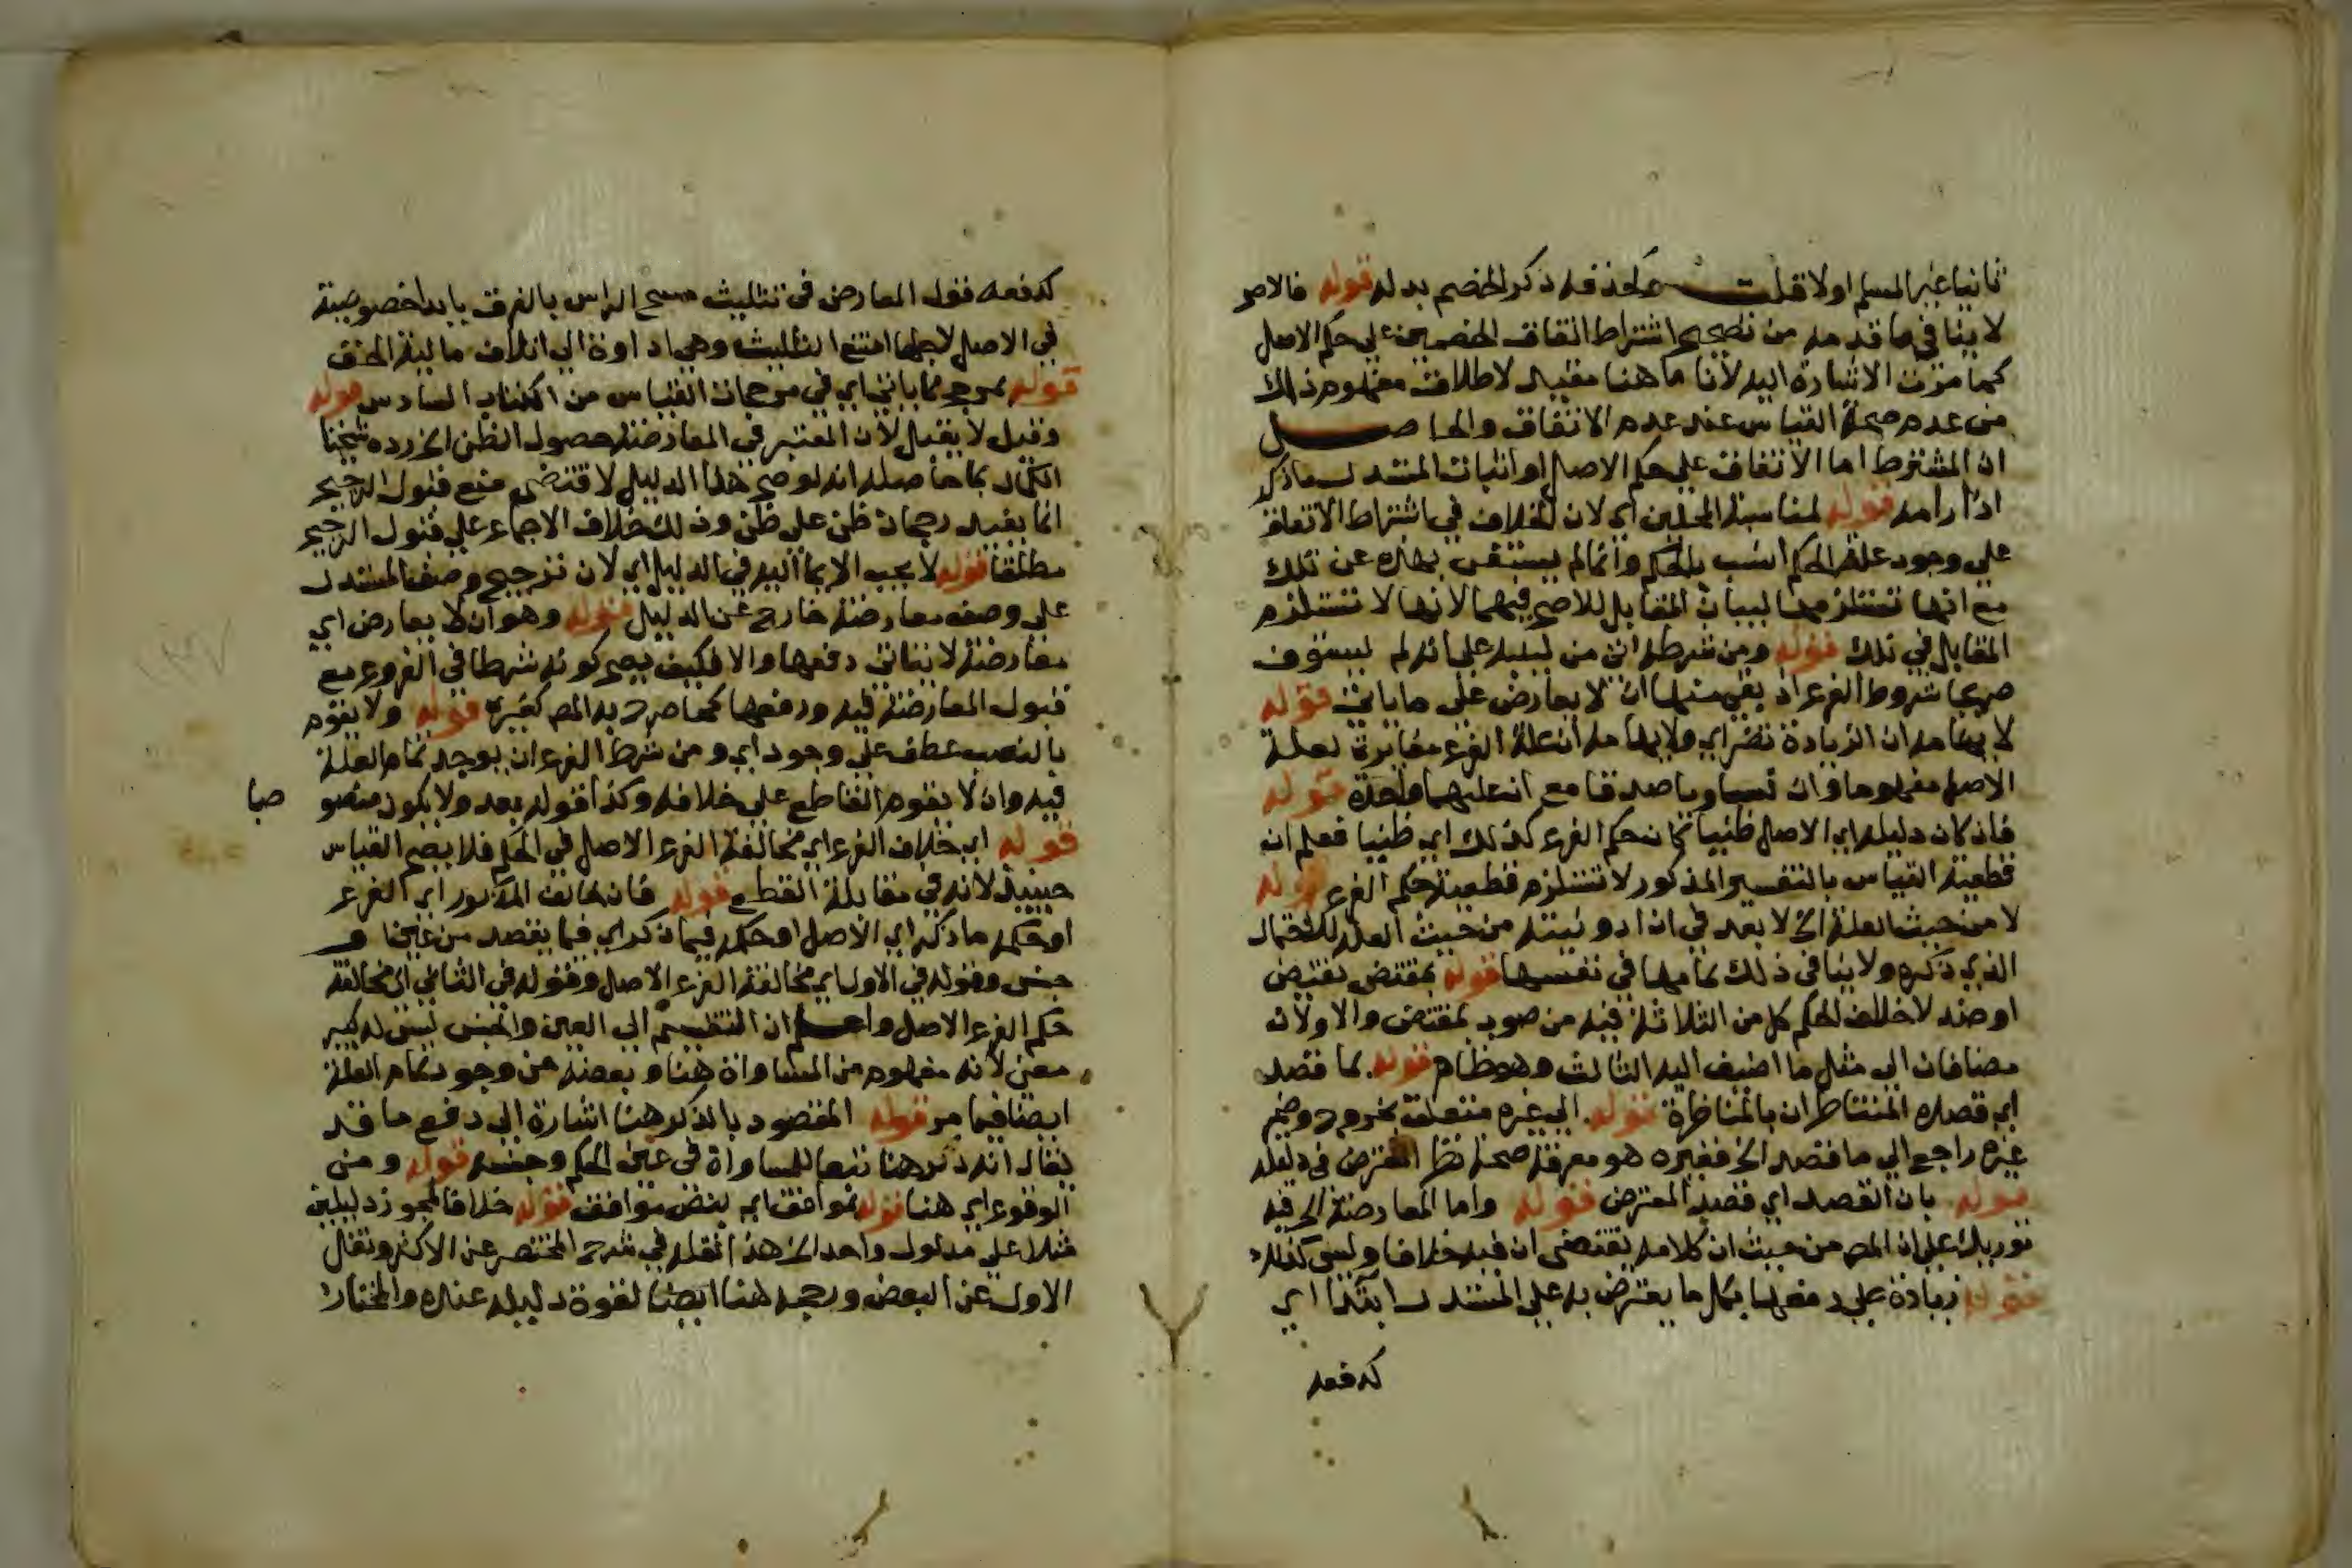 ثانيا غير المسلم اولا قلت ولحذفه ذكر الخصم بدله قوله فالاصح
لا ينافي ما قدمه من تصحيح اشتراط اتفاق الخصمين على حكم الاصل
كما مرت الاشارة اليه لأنا ما هنا مقيد لاطلاق مفهوم ذلك
من عدم صحة القياس عند عدم الاتفاق والحاصل
ان المشترط اما الاتفاق على حكم الاصل او اثبات المستدل ما ذكر
اذا رامه قوله لمناسبة المحلين اي لان الخلاف في اشتراط الاتفاق
على وجود علة الحكم انسب بالحكم وانما لم يستغن بهذه عن تلك
مع انها تستلزمها لبيان المقابل للاصح فيهما لانها لا تستلزم
المقابل في تلك قوله ومن شرطه اتى من لينبه على انه لم يستوف
صريحا شروط الفرع اذ بقي منها ان لا يعارض على ما ياتي قوله
لا يهامه ان الزيادة تضر اي ولايهامه ان علة الفرع مغايرة لعلة
الاصل مفهوما وان تساويا صدقا مع ان علتهما واحدة قوله
فان كان دليله اي الاصل ظنيا كان حكم الفرع كذلك اي ظنيا فعلم ان
قطعية القياس بالتفسير المذكور لا تستلزم قطعية حكم الفرع قوله
لا من حيث العلة الخ لا بعد في ان ادونيته من حيث العلة للاحتمال
الذي ذكره ولا ينافي ذلك تمامها في نفسها قوله بمقتض نقيض
او ضد لا خلاف الحكم كل من الثلاثة فيه منصوب بمقتض والاولان
مضافان الى مثل ما اضيف اليه الثالث وهو ظاهر قوله بما قصد
اي قصده المتناظران بالمناظرة قوله الى غيره متعلق بخروج وضمير
غيره راجع الى ما قصد الخ فغيره هو معرفة صحة نظر المعترض في دليله
قوله بان القصد اي قصد المعترض قوله واما المعارضة الخ فيه
توريك على ان المص من حيث ان كلامه يقتضى ان فيه خلافا وليس كذلك
قوله زيادة على دفعها بكل ما يعترض به على المستدل ابتدا اي
كدفعه
كدفعه قول المعارض في تثليث مسح الراس بالفرق بابدا خصوصية
في الاصل لاجلها امتنع التثليث وهي اداوة الى اتلاف مالية الخف
قوله بمرجح مما ياتي اي في مرجحات القياس من الكتاب السادس قوله
وقيل لا يقبل لان المعتبر في المعارضة حصول الظن الخ رده شيخنا
الكمال بما حاصله انه لو صح هذا الدليل لاقتضى منع قبول الترجيح
انما يفيد رجحان ظن على ظن وذلك خلاف الاجماع على قبول الترجيح
مطلقا قوله لا يجب الايماء اليه في الدليل اي لان ترجيح وصف المستدل
على وصف معارضة خارج عن الدليل قوله وهو ان لا يعارض اي
معارضة لا يتاتى دفعها والا فكيف يصح كونه شرطا في الفروع مع
قبول المعارضة فيه ودفعها كما صرح به المص كغيره قوله ولا يقوم
بالنصب عطف على وجود اي ومن شرط الفرع ان يوجد تمام العلة
فيه وان لا يقوم القاطع على خلافه وكذا قوله بعد ولا يكون منصو
صا
قوله اي خلاف الفرع اي مخالفة الفرع الاصل في الحكم فلا يصح القياس
حينيذ لانه في مقابلة القطع قوله فان خالف المذكور اي الفرع
او حكمه ما ذكر اي الاصل او حكمه فيما ذكر اي فيما يقصد من عين او
جنس وقوله في الاول اي مخالفة الفرع الاصل وقوله في الثاني اي مخالفة
حكم الفرع الاصل واعلم ان التقسيم الى العين والجنس ليس له كبير
معنى لأنه مفهوم من المساواة هنا وبعضه من وجود تمام العلة
ايضا فيما مر قوله المقصود بالذكر هنا اشارة الى دفع ما قد
يقال انه ذكر هنا تبعا للمساواة في عين الحكم وجنسه قوله ومن
الوقوع اي هنا قوله بموافق اي بنص موافق قوله خلافا لمجوز دليلين
مثلا على مدلول واحد الخ هذا نقله في شرح المختصر عن الاكثر ونقل
الاول عن البعض ورجحه هنا ايضا لقوة دليله عنده والمختار